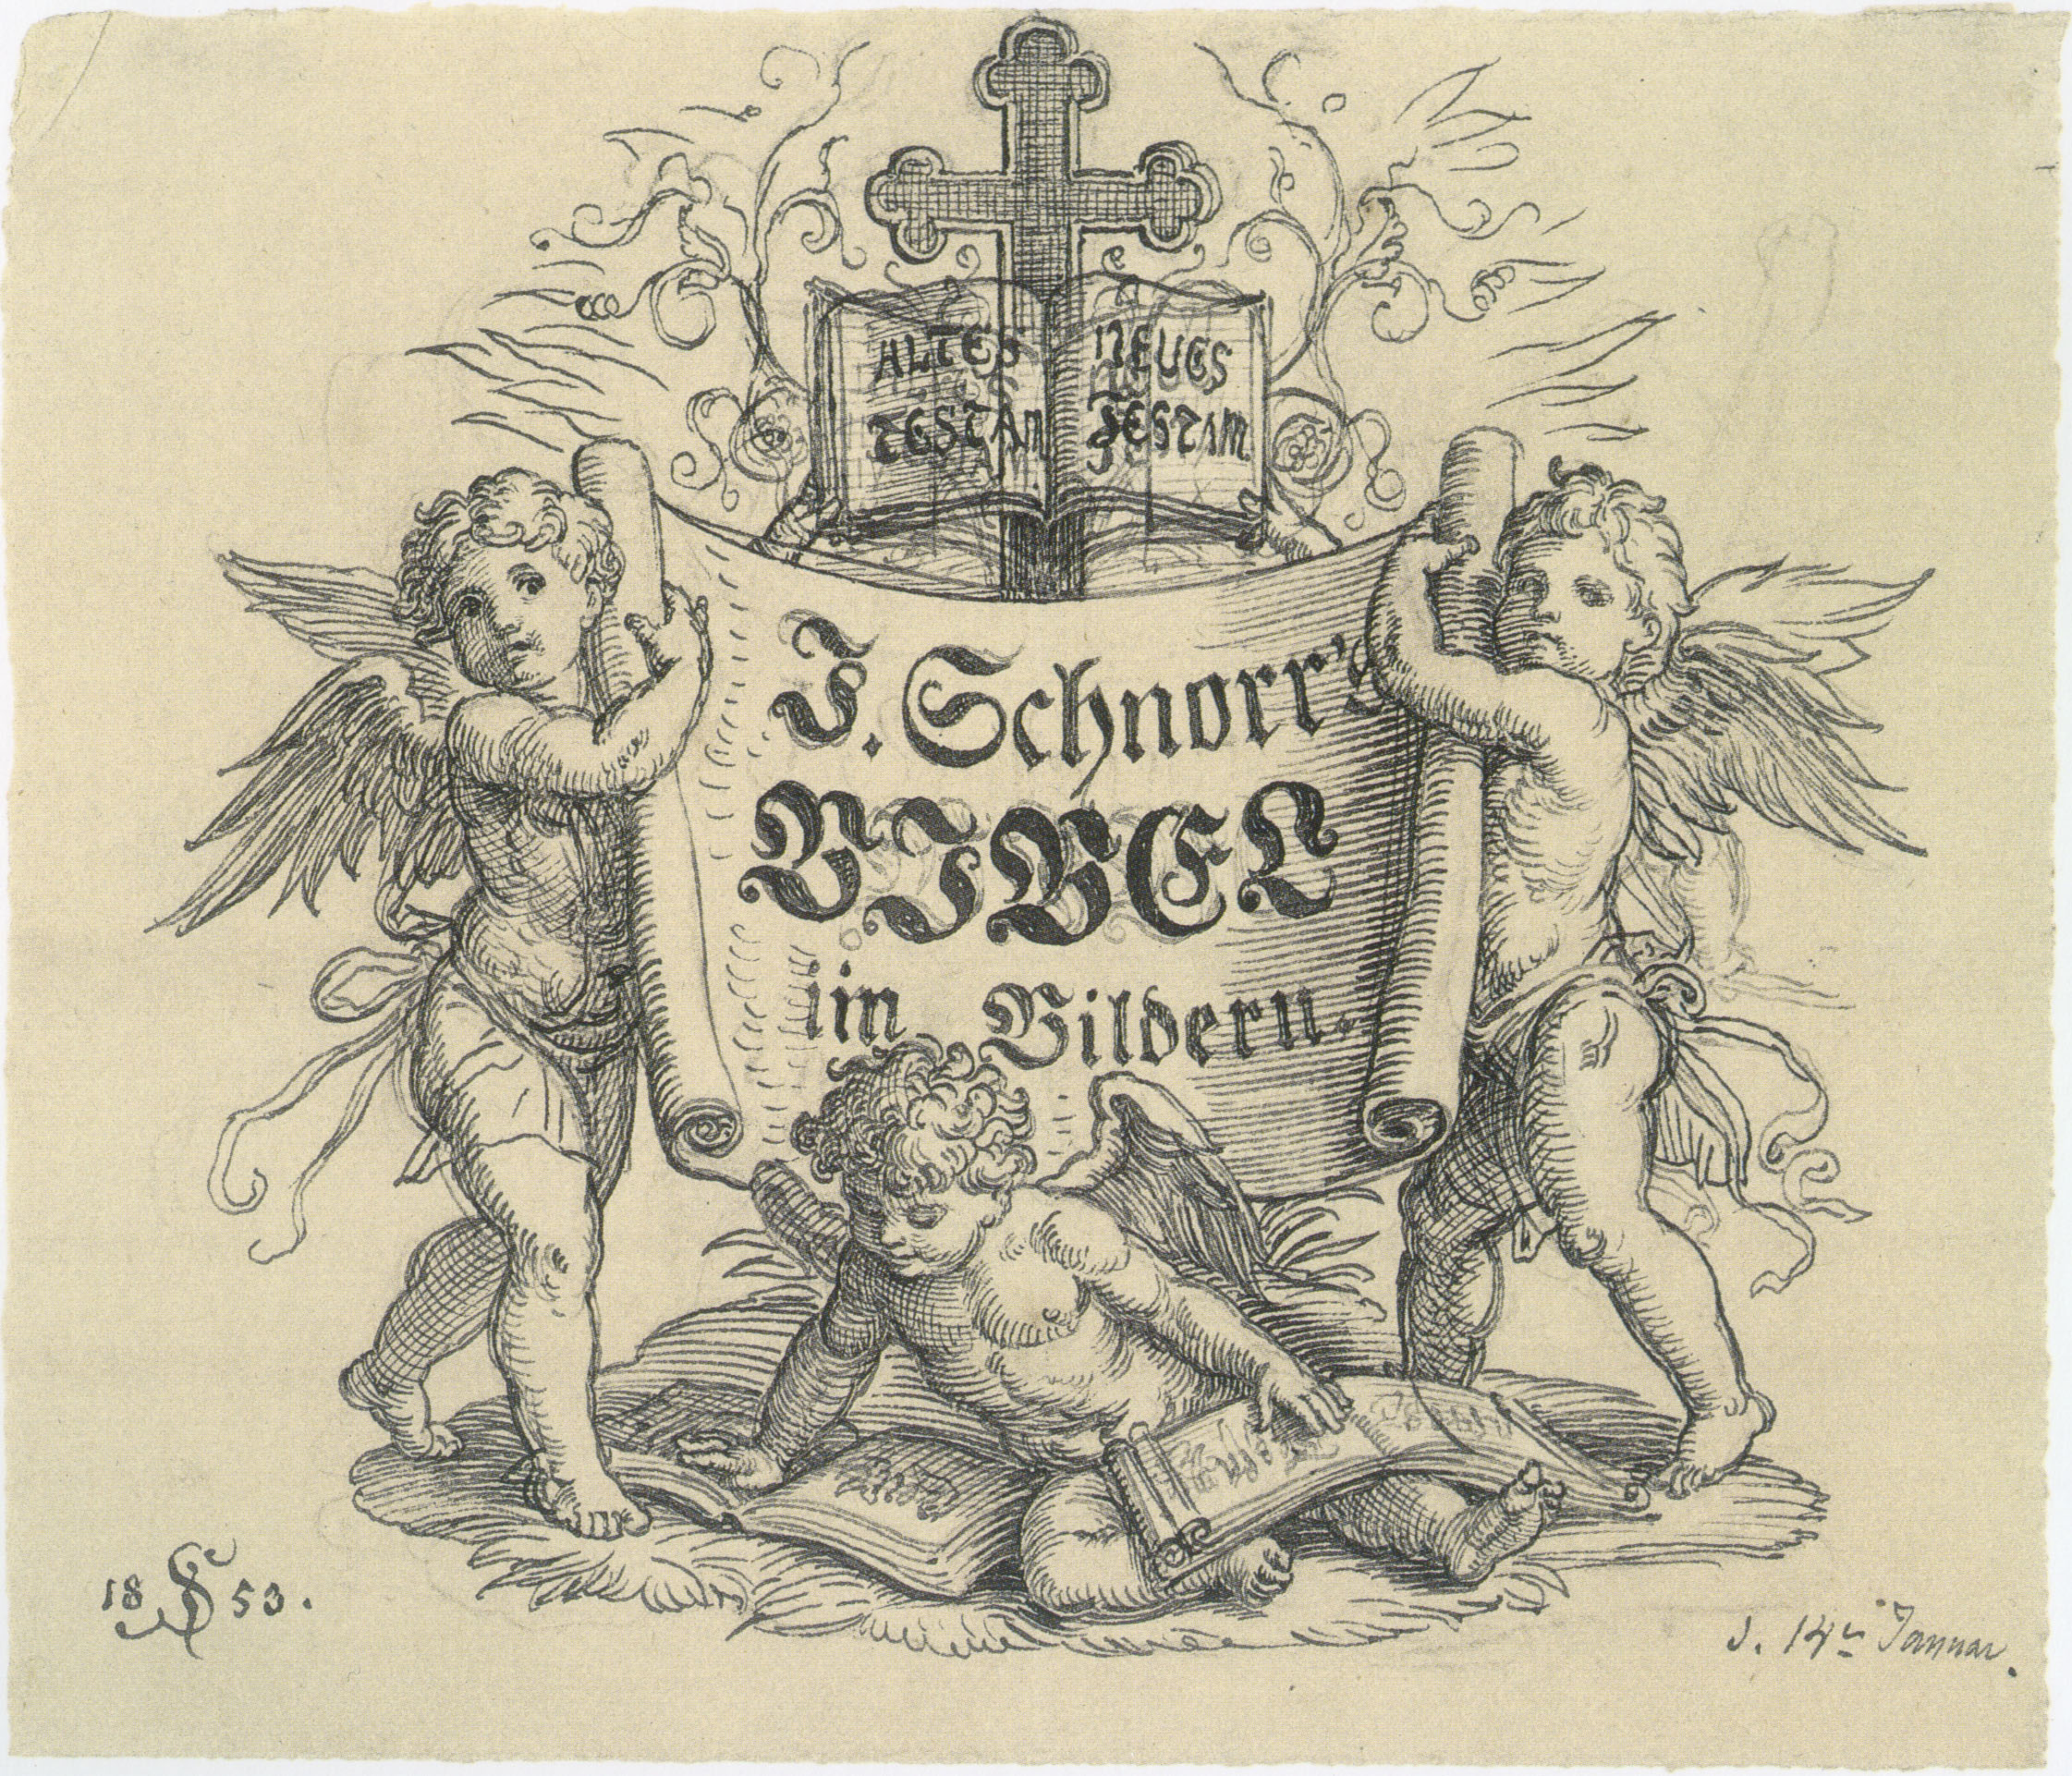 ALTES
TESTAM
NEUES
TESTAM.
J. Schnorr's
BIBEL
in Bildern.
18 53.
d. 14 Januar.